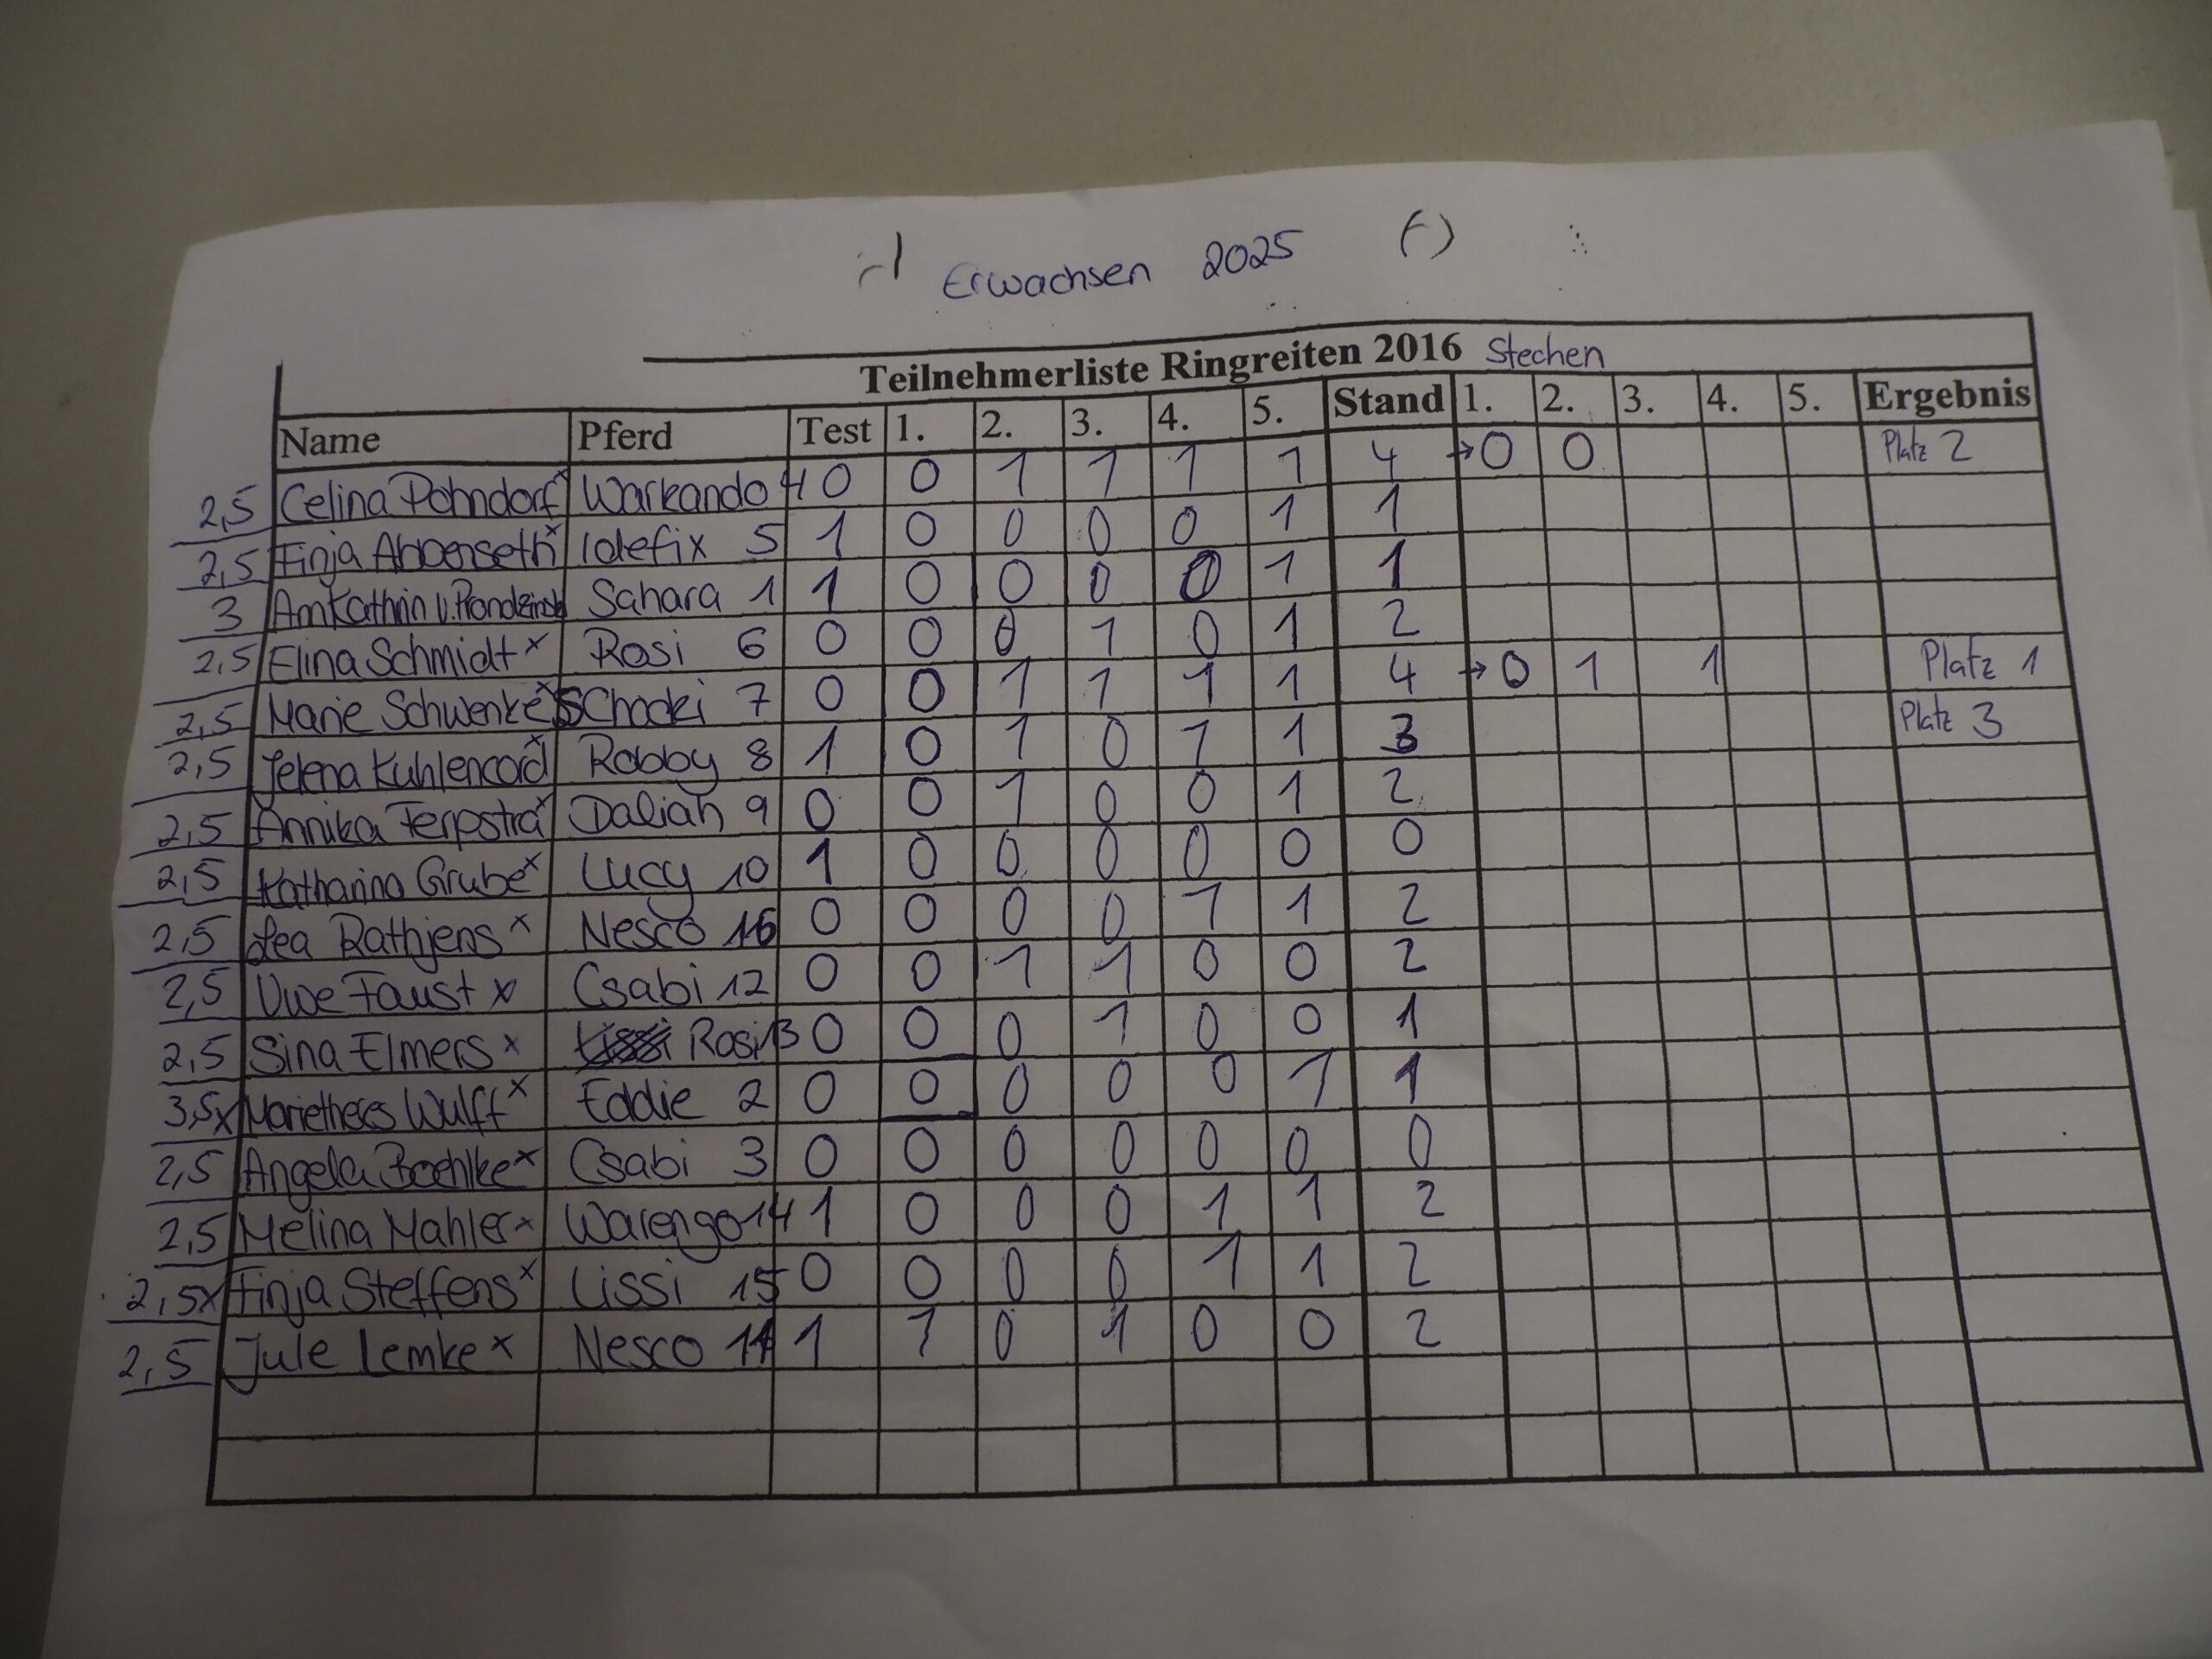 Erwachsen 2025
Teilnehmerliste Ringreiten 2016 Stechen
Name Pferd Test 1. 2. 3. 4. 5. Stand 1. 2. 3. 4. 5. Ergebnis
2,5 Celina Pohndorf x Warkando 4 0 0 1 1 1 1 4 → 0 0 Platz 2
2,5 Finja x Idefix 5 1 0 0 0 0 1 1
3 Sahara 1 1 0 0 0 0 1 1
2,5 Elina Schmidt x Rosi 6 0 0 0 1 0 1 2
2,5 Marie Schwenke x Schocki 7 0 0 1 1 1 1 4 → 0 1 1 Platz 1
2,5 Jelena Kuhlencord x Robby 8 1 0 1 0 1 1 3 Platz 3
2,5 Annika Terpstra x Daliah 9 0 0 1 0 0 1 2
2,5 Katharina Grube x Lucy 10 1 0 0 0 0 0 0
2,5 Lea Rathjens x Nesco 16 0 0 0 0 1 1 2
2,5 Uwe Faust x Csabi 12 0 0 1 1 0 0 2
2,5 Sina Elmers x Lissi Rosi 13 0 0 0 1 0 0 1
3,5x Marietheres Wulff x Eddie 2 0 0 0 0 0 1 1
2,5 Angela x Csabi 3 0 0 0 0 0 0 0
2,5 Melina Mahler x Warengo 14 1 0 0 0 1 1 2
2,5x Finja Steffens x Lissi 15 0 0 0 0 1 1 2
2,5 Jule Lemke x Nesco 11 1 1 0 1 0 0 2